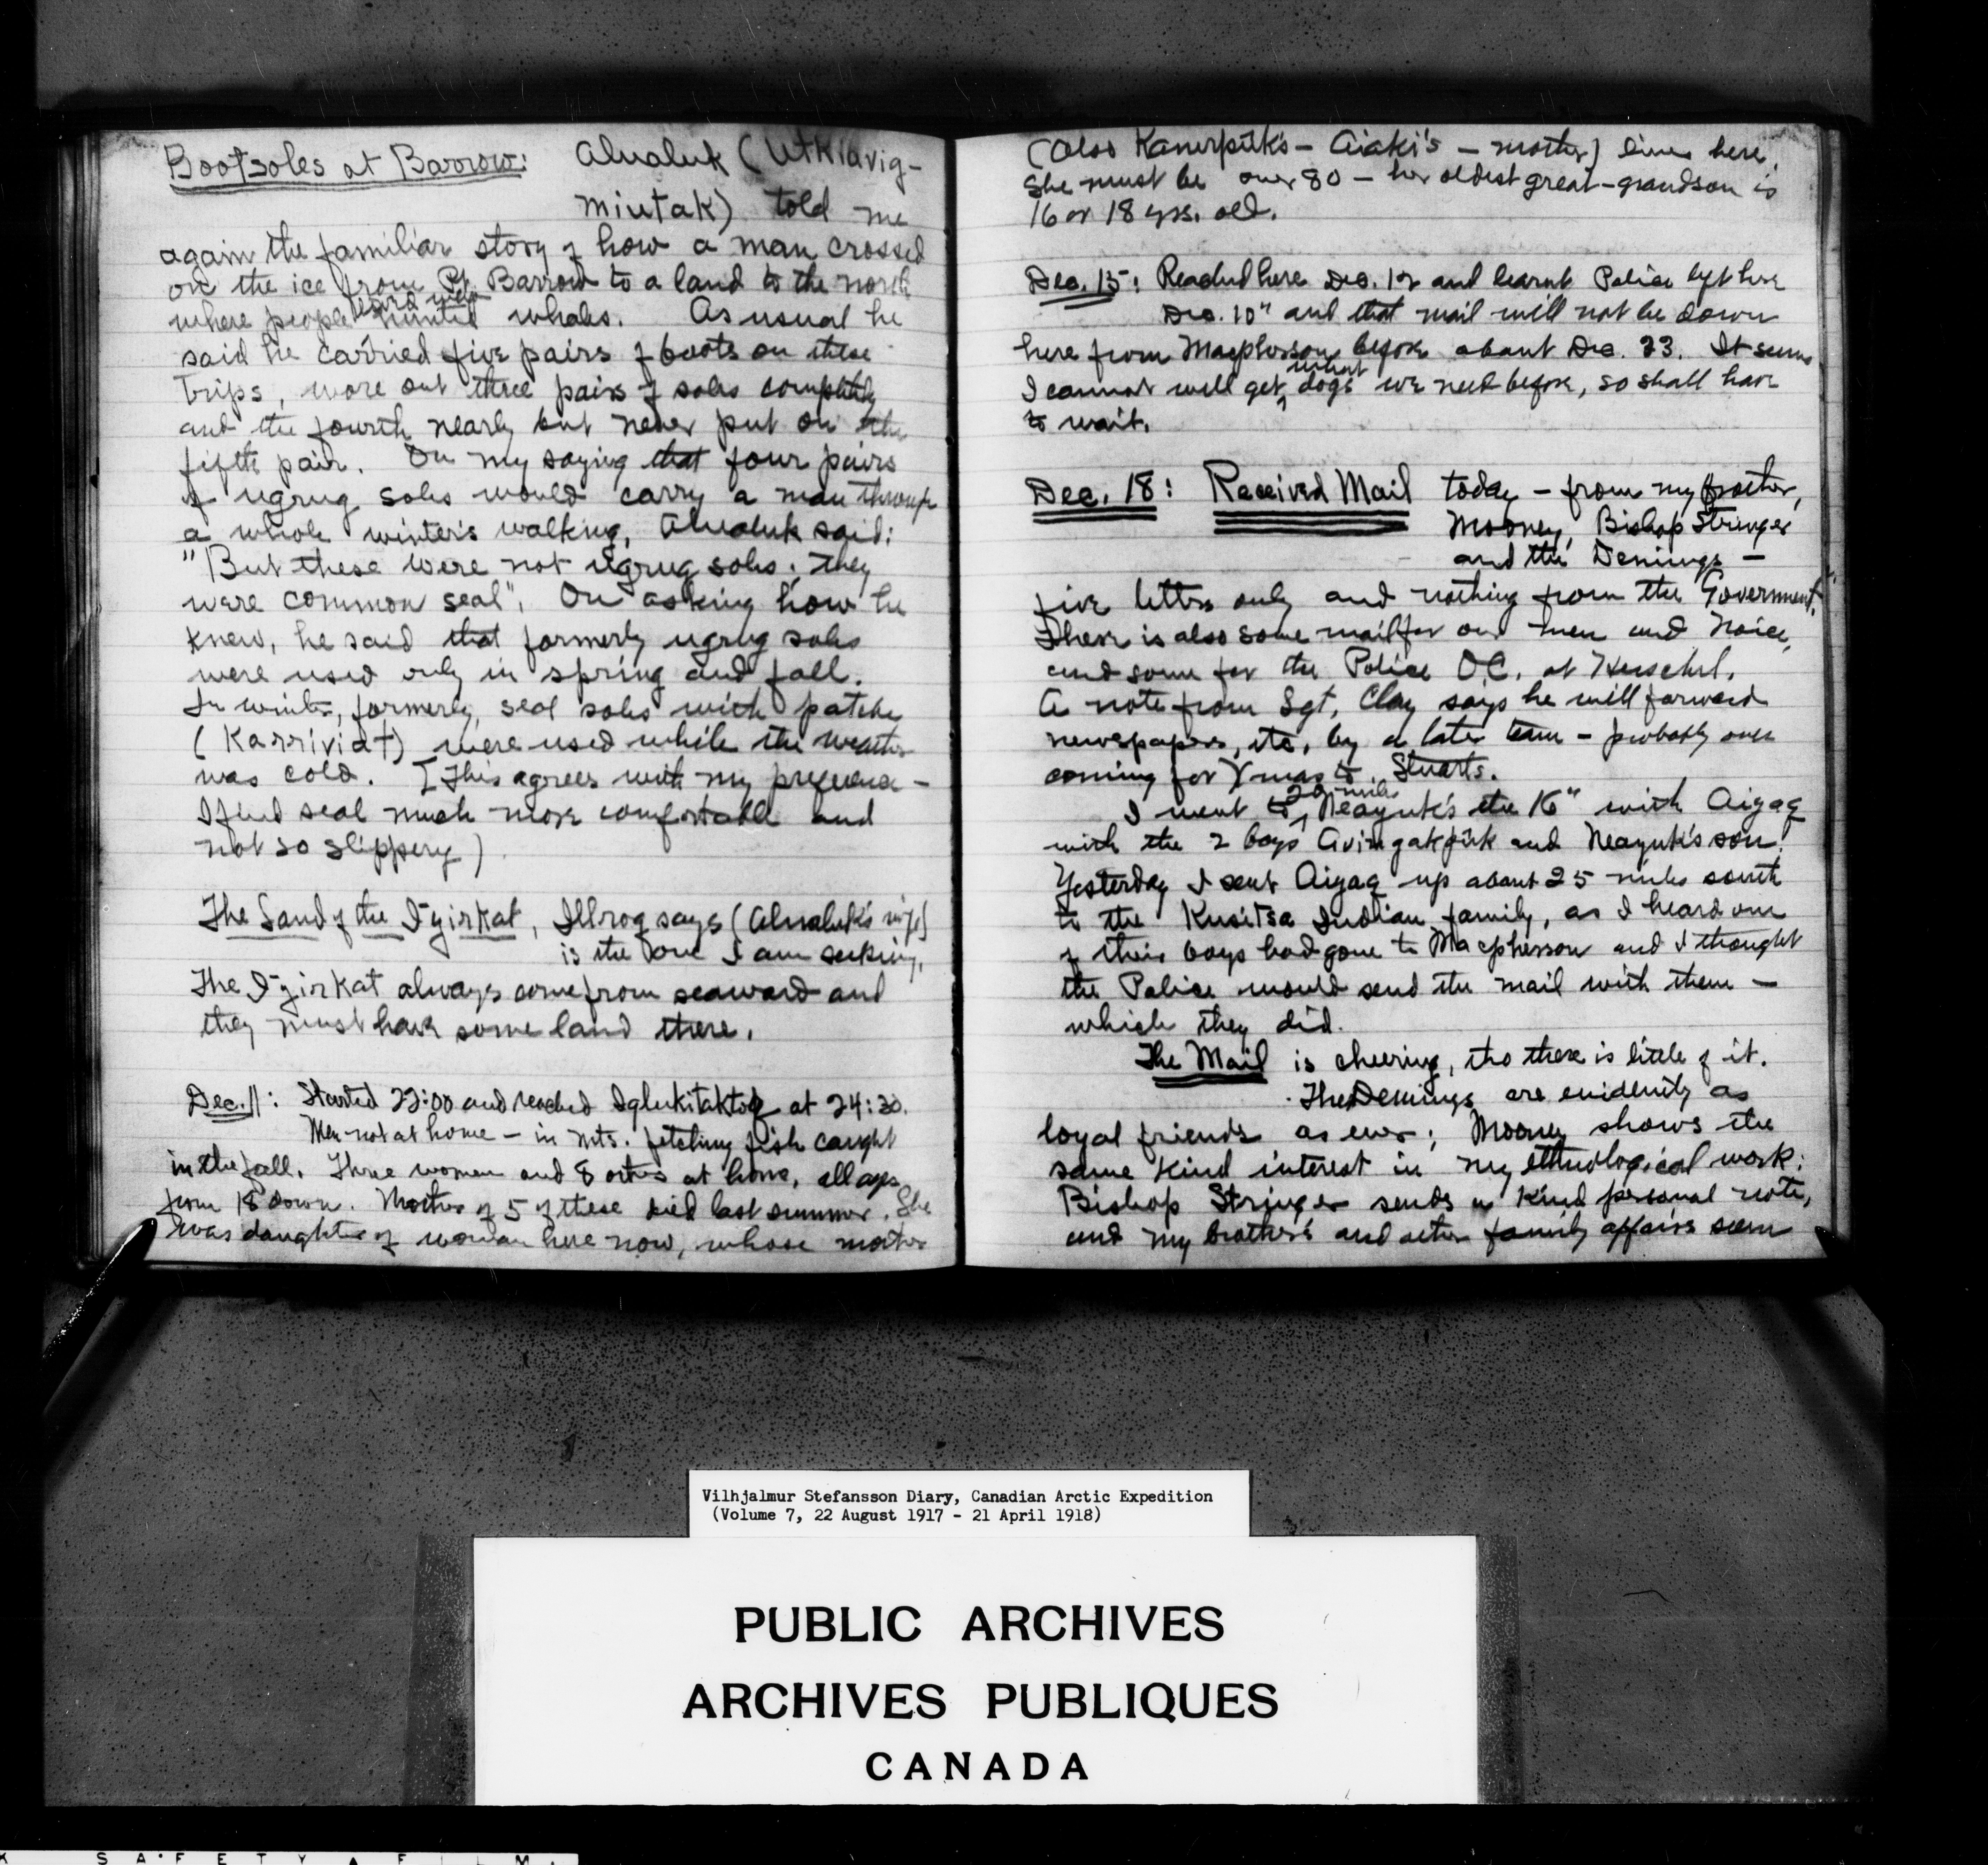 Bootsoles at Barrow: Alualuk (Utkiavig-
miutak) told me
again the familiar story of how a man crossed
on the ice from Pt. Barrow to a land to the north
where people hunted whales. As usual he
said he carried five pairs of boots on these
trips, wore out three pairs of soles completely
and the fourth nearly but never put on the
fifth pair. On my saying that four pairs
of ugrug soles would carry a man through
a whole winter's walking, Alualuk said:
"But these were not ugrug soles; they
were common seal". On asking how he
knew, he said that formerly ugrug soles
were used only in spring and fall.
In winter, formerly, seal soles with patches
(Karriviat) were used while the weather
was cold. [This agrees with my preference -
I find seal much more comfortable and
not so slippery)
The Land of the Igirkat, Illroq says (Alualuk's wife)
is the one I am seeking.
The Igirkat always come from seaward and
they must have some land there.
Dec. 11: Started 22:00 and reached Iglukitaktoq at 24:30.
Men not at home - in mts. fetching fish caught
in the fall. Three women and 8 others at home, all ages
from 18 down. Mother of 5 of these died last summer. She
was daughter of woman here now, whose mother
(also Kanerpuk's - Aiaki's - mother) lives here.
She must be over 80 - her oldest great-grandson is
16 or 18 yrs. old.
Dec. 15: Reached here Dec. 12 and learnt Police left here
Dec. 10" and that mail will not be down
here from Macpherson before about Dec. 23. It seems
I cannot well get what dogs we need before, so shall have
to wait.
Dec. 18: Received Mail today - from my brother,
Mooney, Bishop Stringer
and the Demings -
five letters only and nothing from the Government.
There is also some mail for our men and Noice,
and some for the Police O.C. at Herschel.
A note from Sgt. Clay says he will forward
newspapers, etc, by a later team - probably one
coming for Xmas to Stuarts.
I went to 20 miles Neayuk's the 16" with Aigaq
with the 2 boys Avingakpuk and Neayuk's son.
Yesterday I sent Aigaq up about 25 miles south
to the Kusitsa Indian family, as I heard one
of their boys had gone to Macpherson and I thought
the Police would send the mail with them -
which they did.
The Mail is cheering, tho there is little of it.
The Demings are evidently as
loyal friends as ever; Mooney shows the
same kind interest in my ethnological work;
Bishop Stringer sends a kind personal note,
and my brother's and other family affairs seem
Vilhjalmur Stefansson Diary, Canadian Arctic Expedition
(Volume 7, 22 August 1917 - 21 April 1918)
PUBLIC ARCHIVES
ARCHIVES PUBLIQUES
CANADA
SAFETY FILM